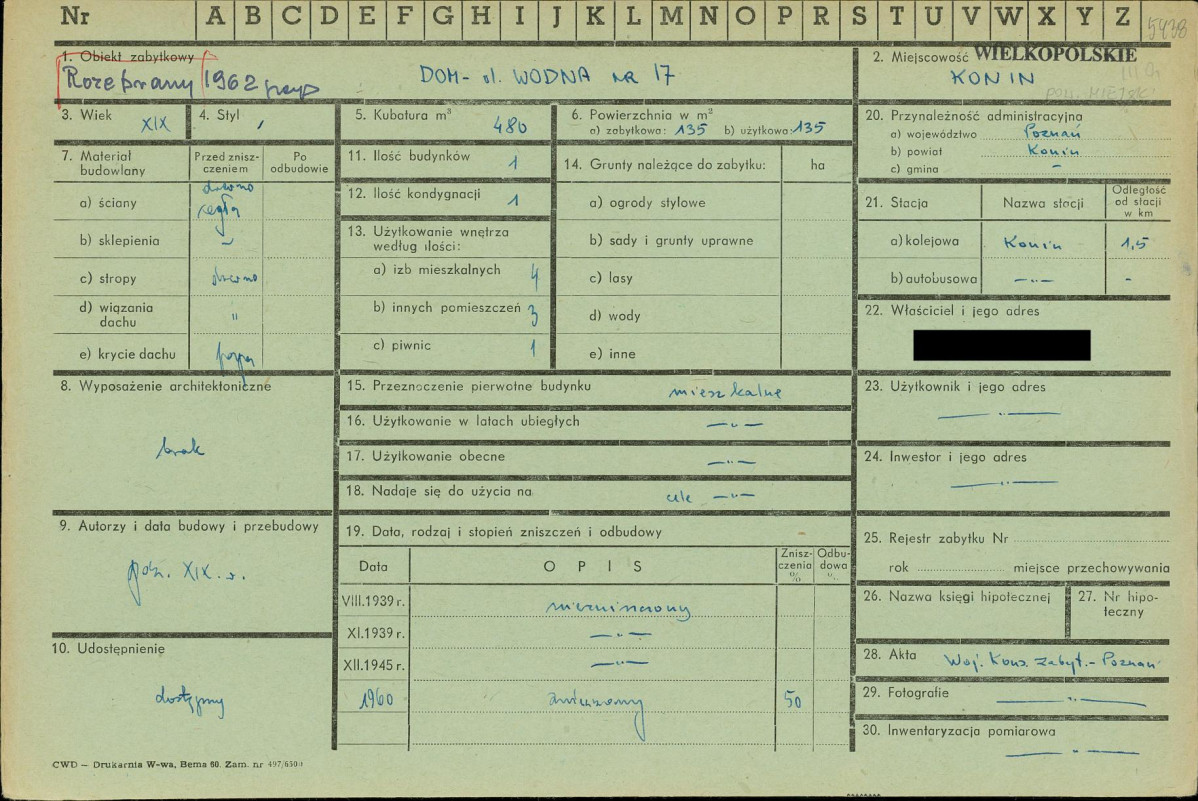 Nr A B C D E F G H I J K L M N O P R S T U V W X Y Z 5438
1. Obiekt zabytkowy
Rozebrany 1962
DOM - ul. WODNA nr 17
2. Miejscowość WIELKOPOLSKIE
KONIN
POW. MIEJSKI
3. Wiek XIX
4. Styl
5. Kubatura m³ 480
6. Powierzchnia w m²
a) zabytkowa: 135 b) użytkowa: 135
20. Przynależność administracyjna
a) województwo Poznań
b) powiat Konin
c) gmina –
7. Materiał budowlany
Przed znisz-
czeniem
Po
odbudowie
a) ściany drewno
cegła
b) sklepienia –
c) stropy drewno
d) wiązania
dachu "
e) krycie dachu papa
11. Ilość budynków 1
12. Ilość kondygnacji 1
13. Użytkowanie wnętrza
według ilości:
a) izb mieszkalnych 4
b) innych pomieszczeń 3
c) piwnic 1
14. Grunty należące do zabytku: ha
a) ogrody stylowe
b) sady i grunty uprawne
c) lasy
d) wody
e) inne
21. Stacja Nazwa stacji
Odległość
od stacji
w km
a) kolejowa Konin 1,5
b) autobusowa –"– -
22. Właściciel i jego adres
8. Wyposażenie architektoniczne
brak
15. Przeznoczenie pierwotne budynku mieszkalne
16. Użytkowanie w latach ubiegłych –"–
17. Użytkowanie obecne –"–
18. Nadaje się do użycia na cele –"–
23. Użytkownik i jego adres
–"–
24. Inwestor i jego adres
–"–
9. Autorzy i data budowy i przebudowy
XIX w.
19. Data, rodzaj i stopień zniszczeń i odbudowy
Data OPIS
Znisz-
czenia
%
Odbu-
dowa
%
VIII.1939 r.
XI.1939 r. –"–
XII.1945 r. –"–
1960 zniszczony 50
25. Rejestr zabytku Nr
rok miejsce przechowywania
26. Nazwa księgi hipotecznej
27. Nr hipo-
teczny
10. Udostępnienie
dostępny
28. Akta Woj. Kons. Zabyt. - Poznań
29. Fotografie –"–
30. Inwentaryzacja pomiarowa
–"–
CWD — Drukarnia W-wa, Bema 60. Zam. nr 497/6300